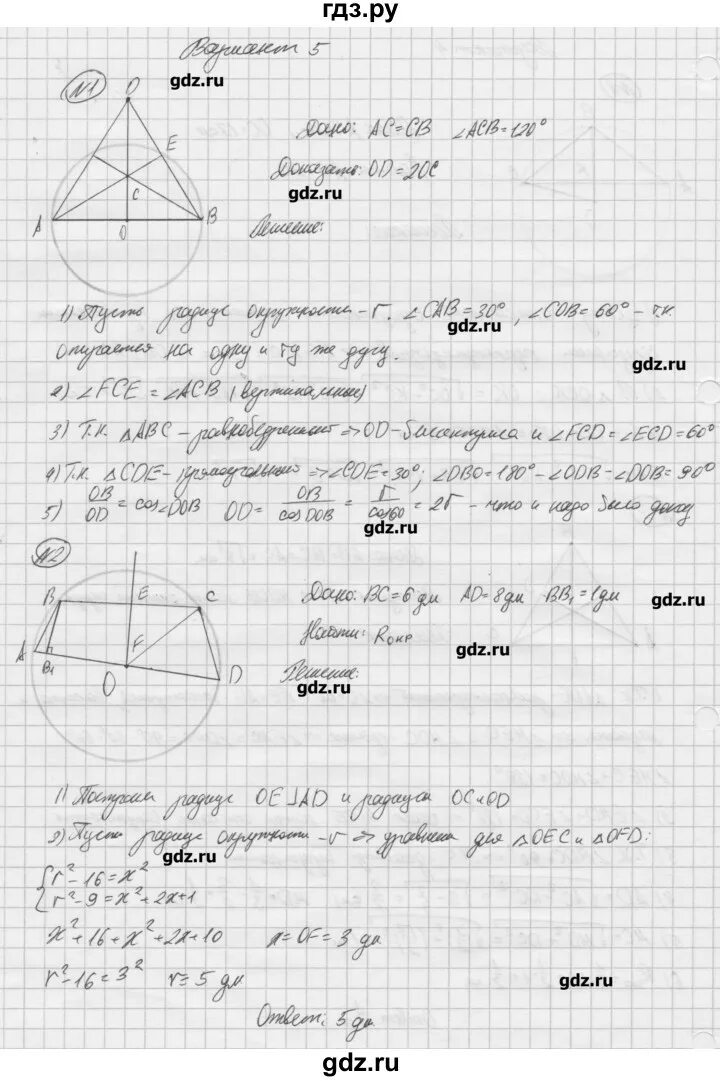 гдз.ру
Вариант 5
gdz.ru
N1
D
E
C
A
B
O
Дано: AC=CB ∠ACB=120°
Доказать: OD=2OC
gdz.ru
Решение:
1) Пусть радиус окружности - r. ∠CAB=30°, ∠COB=60° - т.к.
gdz.ru
опирается на одну и ту же дугу.
gdz.ru
2) ∠FCE=∠ACB (вертикальные)
3) Т.к. △ABC - равнобедренный ⇒ OD - биссектриса и ∠FCD=∠ECD=60°
4) Т.к. △CDE - прямоугольный ⇒ ∠CDE=30°; ∠DBO=180°-∠ODB-∠DOB=90°
5) OB/OD = cos∠DOB OD = OB/cosDOB = r/cos60 = 2r - что и надо было доказ
gdz.ru
N2
B
E
C
F
A
B₁
O
D
Дано: BC=6 дм AD=8дм BB₁=1дм
gdz.ru
Найти: Rокр
gdz.ru
Решение:
gdz.ru
1) Построим радиус OE⊥AD и радиусы OC и OD
2) Пусть радиус окружности - r ⇒ уравнения для △OEC и △OFD:
gdz.ru
r²-16=x²
r²-9=x²+2x+1
x²+16+x²+2x+10 x=OF=3 дм
r²-16=3² r=5 дм
gdz.ru
Ответ: 5дм
gdz.ru